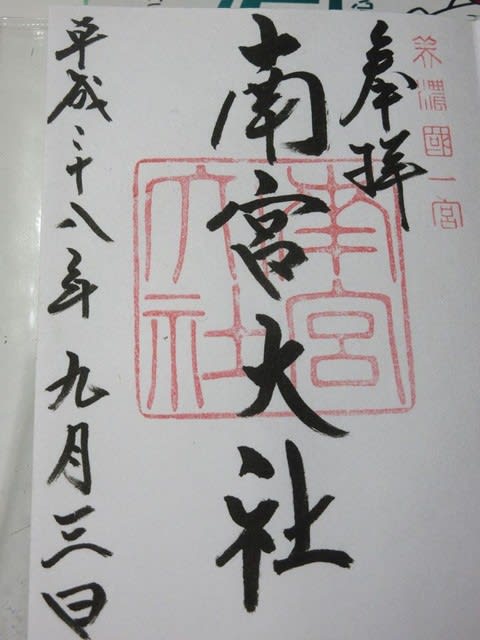 美濃國一宮
奉拝
南宮大社
南宮大社
平成二十八年九月三日